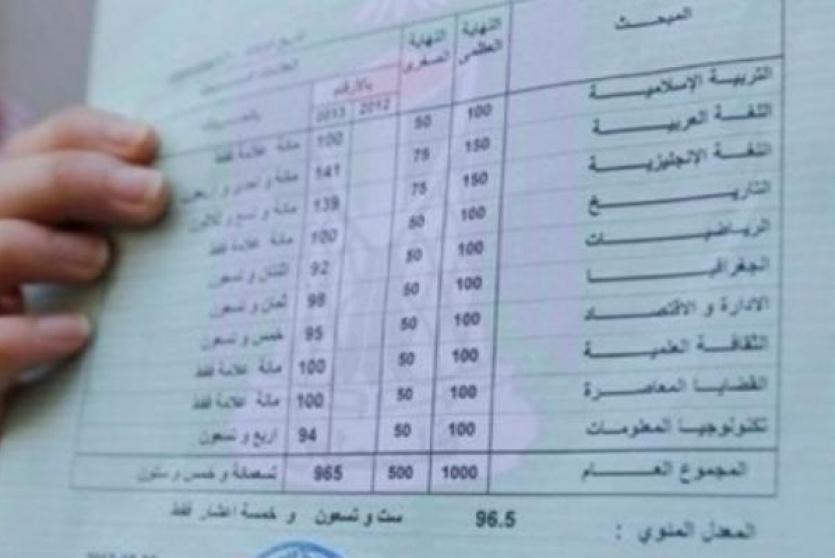 المبحث النهاية العظمى النهاية الصغرى
بالأرقام
2012 2013
التربية الإسلامية 100 50 100 مائة علامة فقط
اللغة العربية 150 75 141 مائة و احدى و اربعون
اللغة الإنجليزية 150 75 139 مائة و تسع و ثلاثون
التاريخ 100 50 100 مائة علامة فقط
الرياضيات 100 50 92 اثنتان و تسعون
الجغرافيا 100 50 98 ثمان و تسعون
الادارة و الاقتصاد 100 50 95 خمس و تسعون
الثقافة العلمية 100 50 100 مائة علامة فقط
القضايا المعاصرة 100 50 100 مائة علامة فقط
تكنولوجيا المعلومات 100 50 94 اربع و تسعون
المجموع العام 1000 500 965 تسعمائة و خمس وستون
المعدل المئوي : 96.5 ست و تسعون و خمسة اعشار فقط